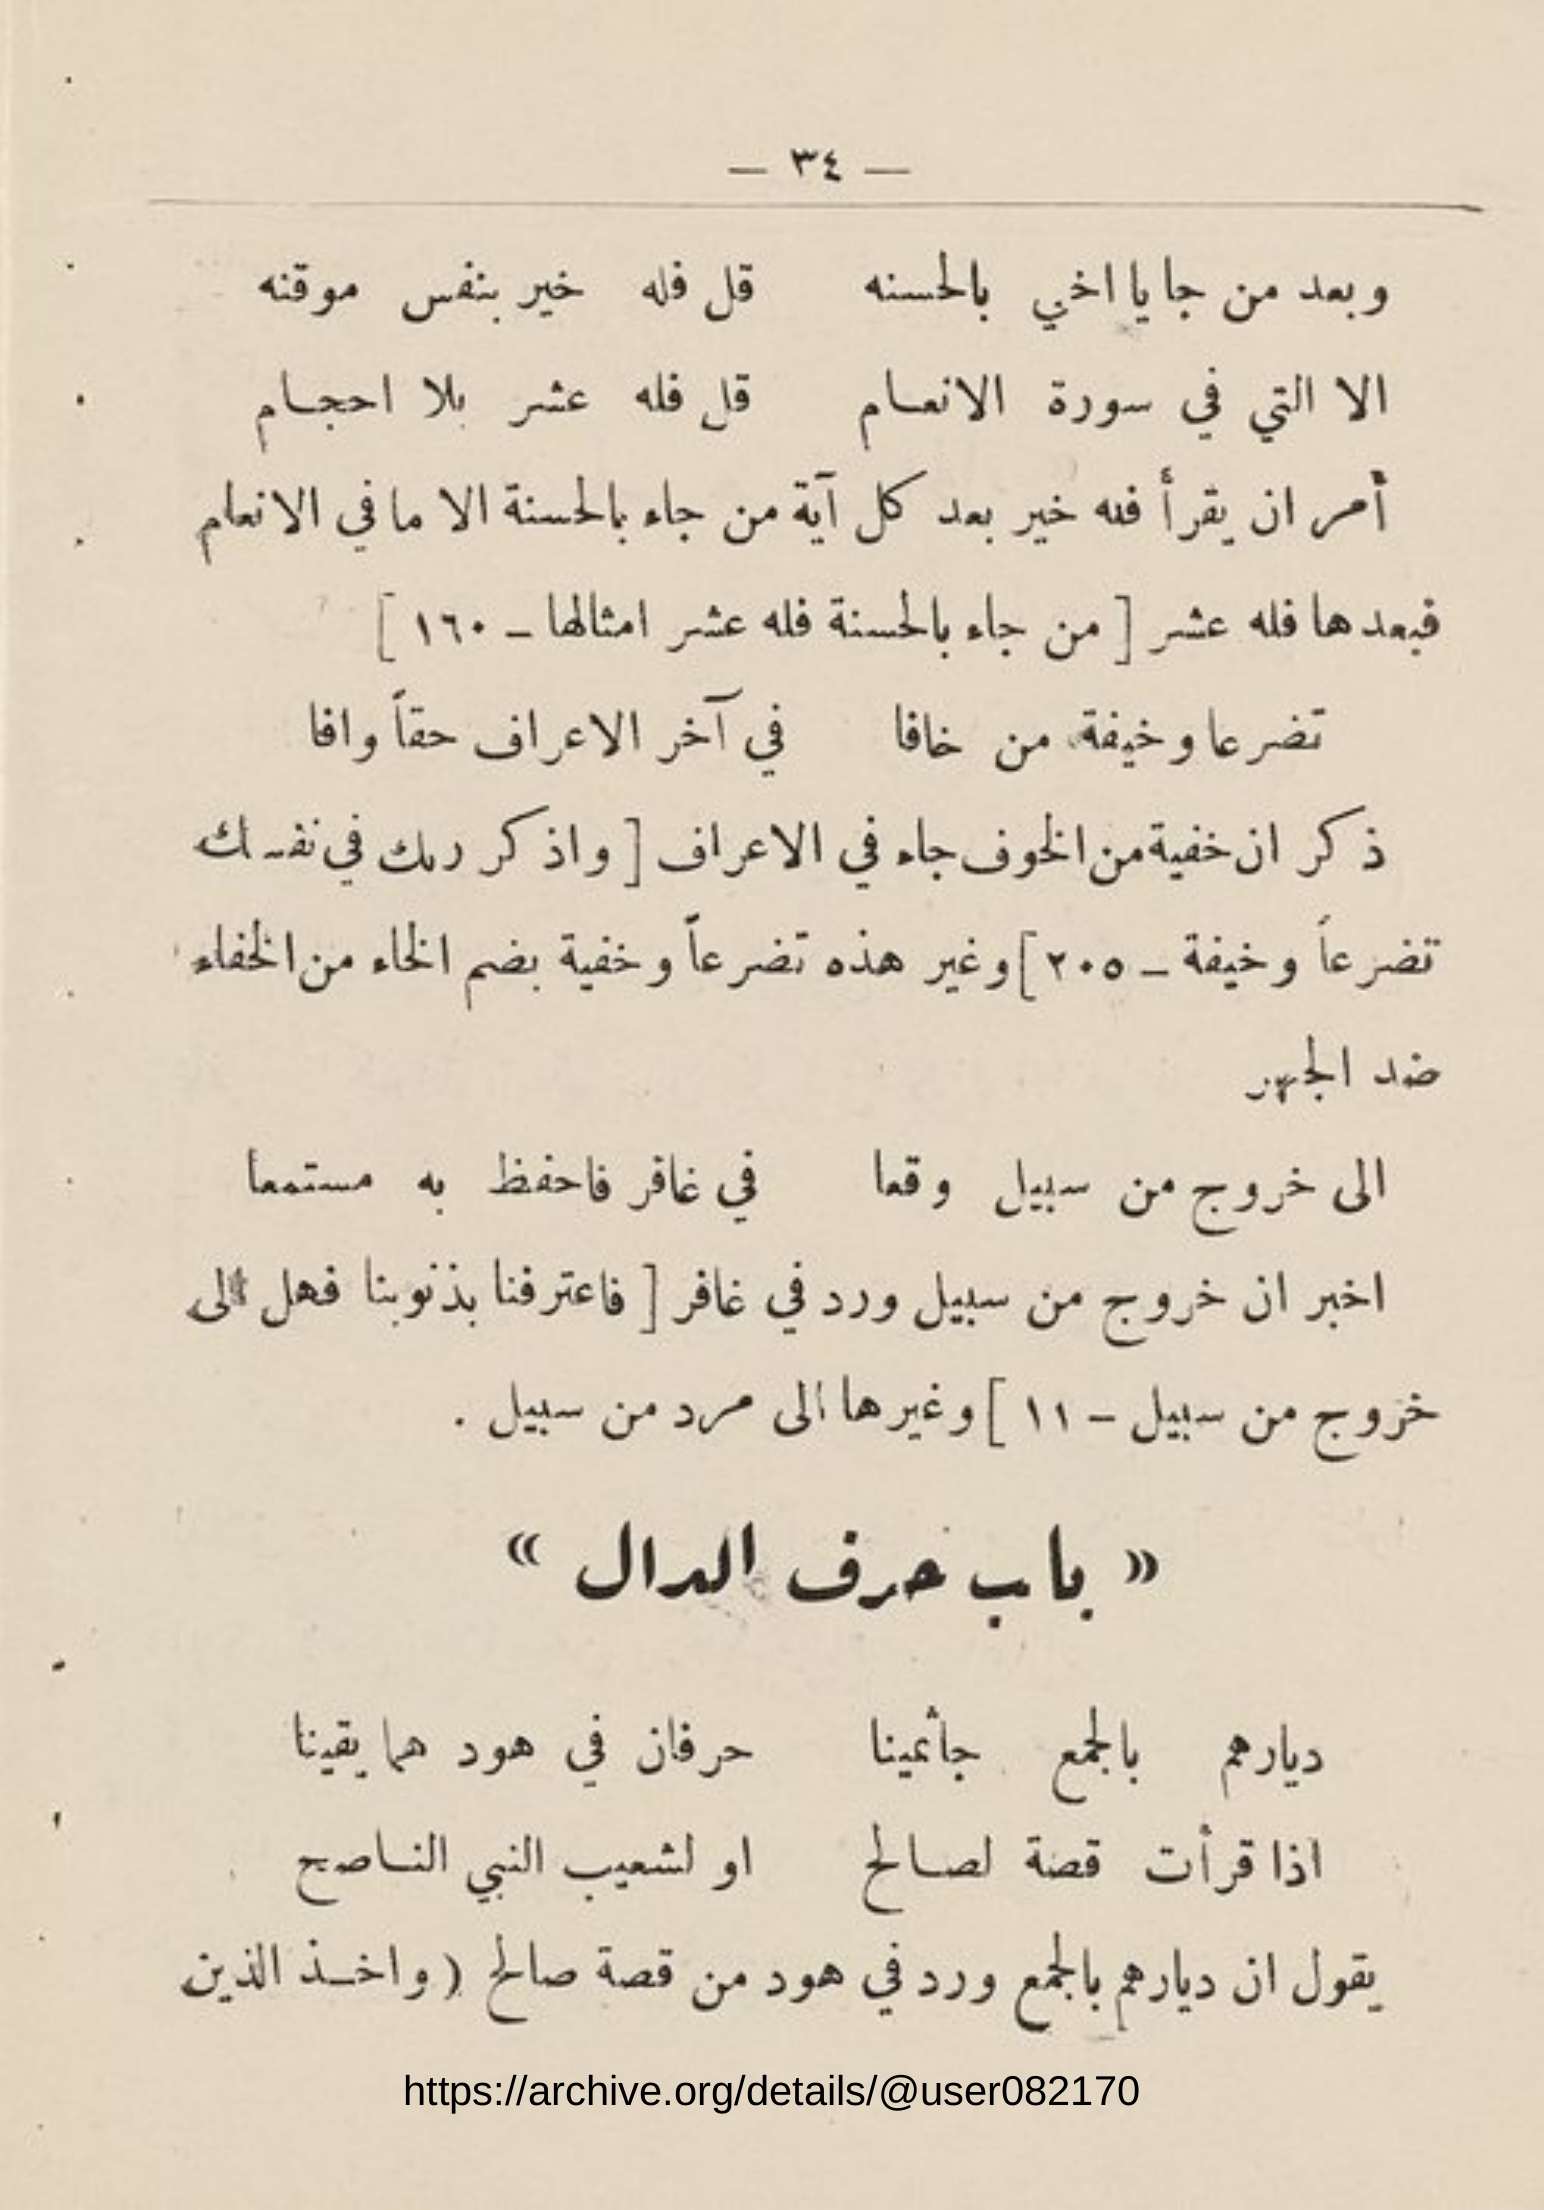 — ٣٤ —
وبعد من جا يا اخي بالحسنه قل فله خير بنفس موقنه
الا التي في سورة الانعـام قل فله عشر بلا احجـام
أمر ان يقرأ فله خير بعد كل آية من جاء بالحسنة الا ما في الانعام
فبعدها فله عشر [ من جاء بالحسنة فله عشر امثالها ـ ١٦٠ ]
تضرعا وخيفة من خافا في آخر الاعراف حقاً وافا
ذكر ان خفية من الخوف جاء في الاعراف [ واذكر ربك في نفسك
تضرعاً وخيفة ـ ٢٠٥ ] وغير هذه تضرعاً وخفية بضم الخاء من الخفاء
ضد الجهر
الى خروج من سبيل وقعا في غافر فاحفظ به مستمعا
اخبر ان خروج من سبيل ورد في غافر [ فاعترفنا بذنوبنا فهل الى
خروج من سبيل ـ ١١ ] وغيرها الى مرد من سبيل .
« باب حرف الدال »
ديارهم بالجمع جأثمينا حرفان في هود هما يقينا
اذا قرأت قصة لصـالح او لشعيب النبي النـاصح
يقول ان ديارهم بالجمع ورد في هود من قصة صالح ( واخـذ الذين
https://archive.org/details/@user082170